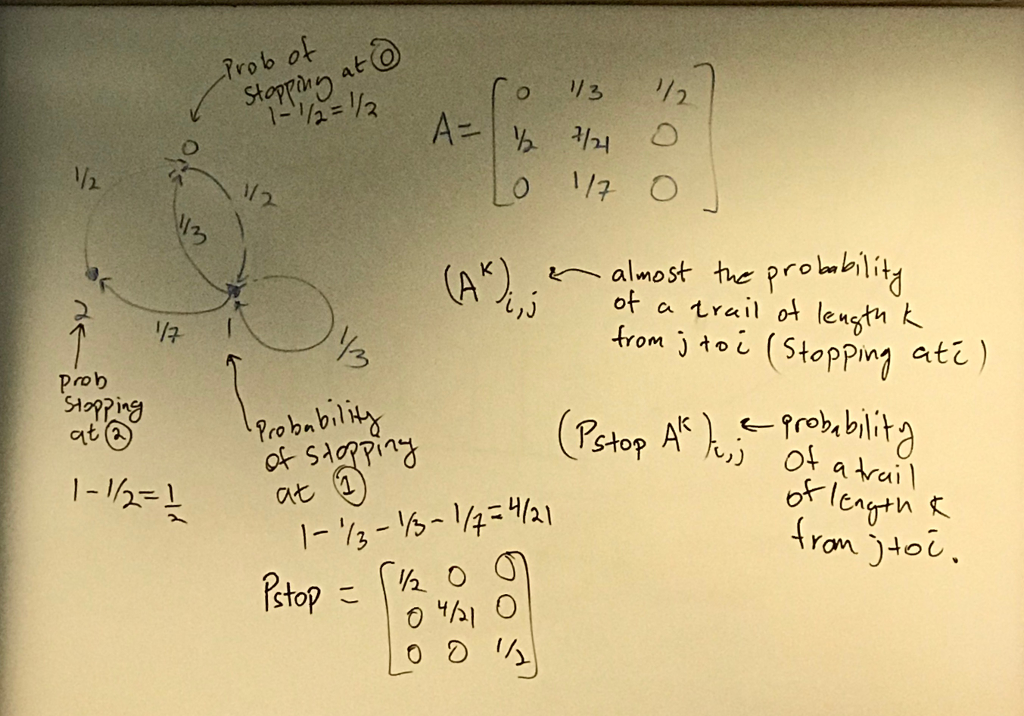 Prob of
Stopping at ⓪
1-1/2=1/2
0
1/2
1/2
1/3
2
1/7
1
1/3
prob
Stopping
at ②
1-1/2=1/2
Probability
of stopping
at ①
1-1/3-1/3-1/7=4/21
Pstop = [1/2 0 0
0 4/21 0
0 0 1/2]
A= [0 1/3 1/2
1/2 7/21 0
0 1/7 0]
(A^K)i,j ← almost the probability
of a trail of length k
from j to i (Stopping at i)
(Pstop A^K)i,j ← probability
of a trail
of length k
from j to i.